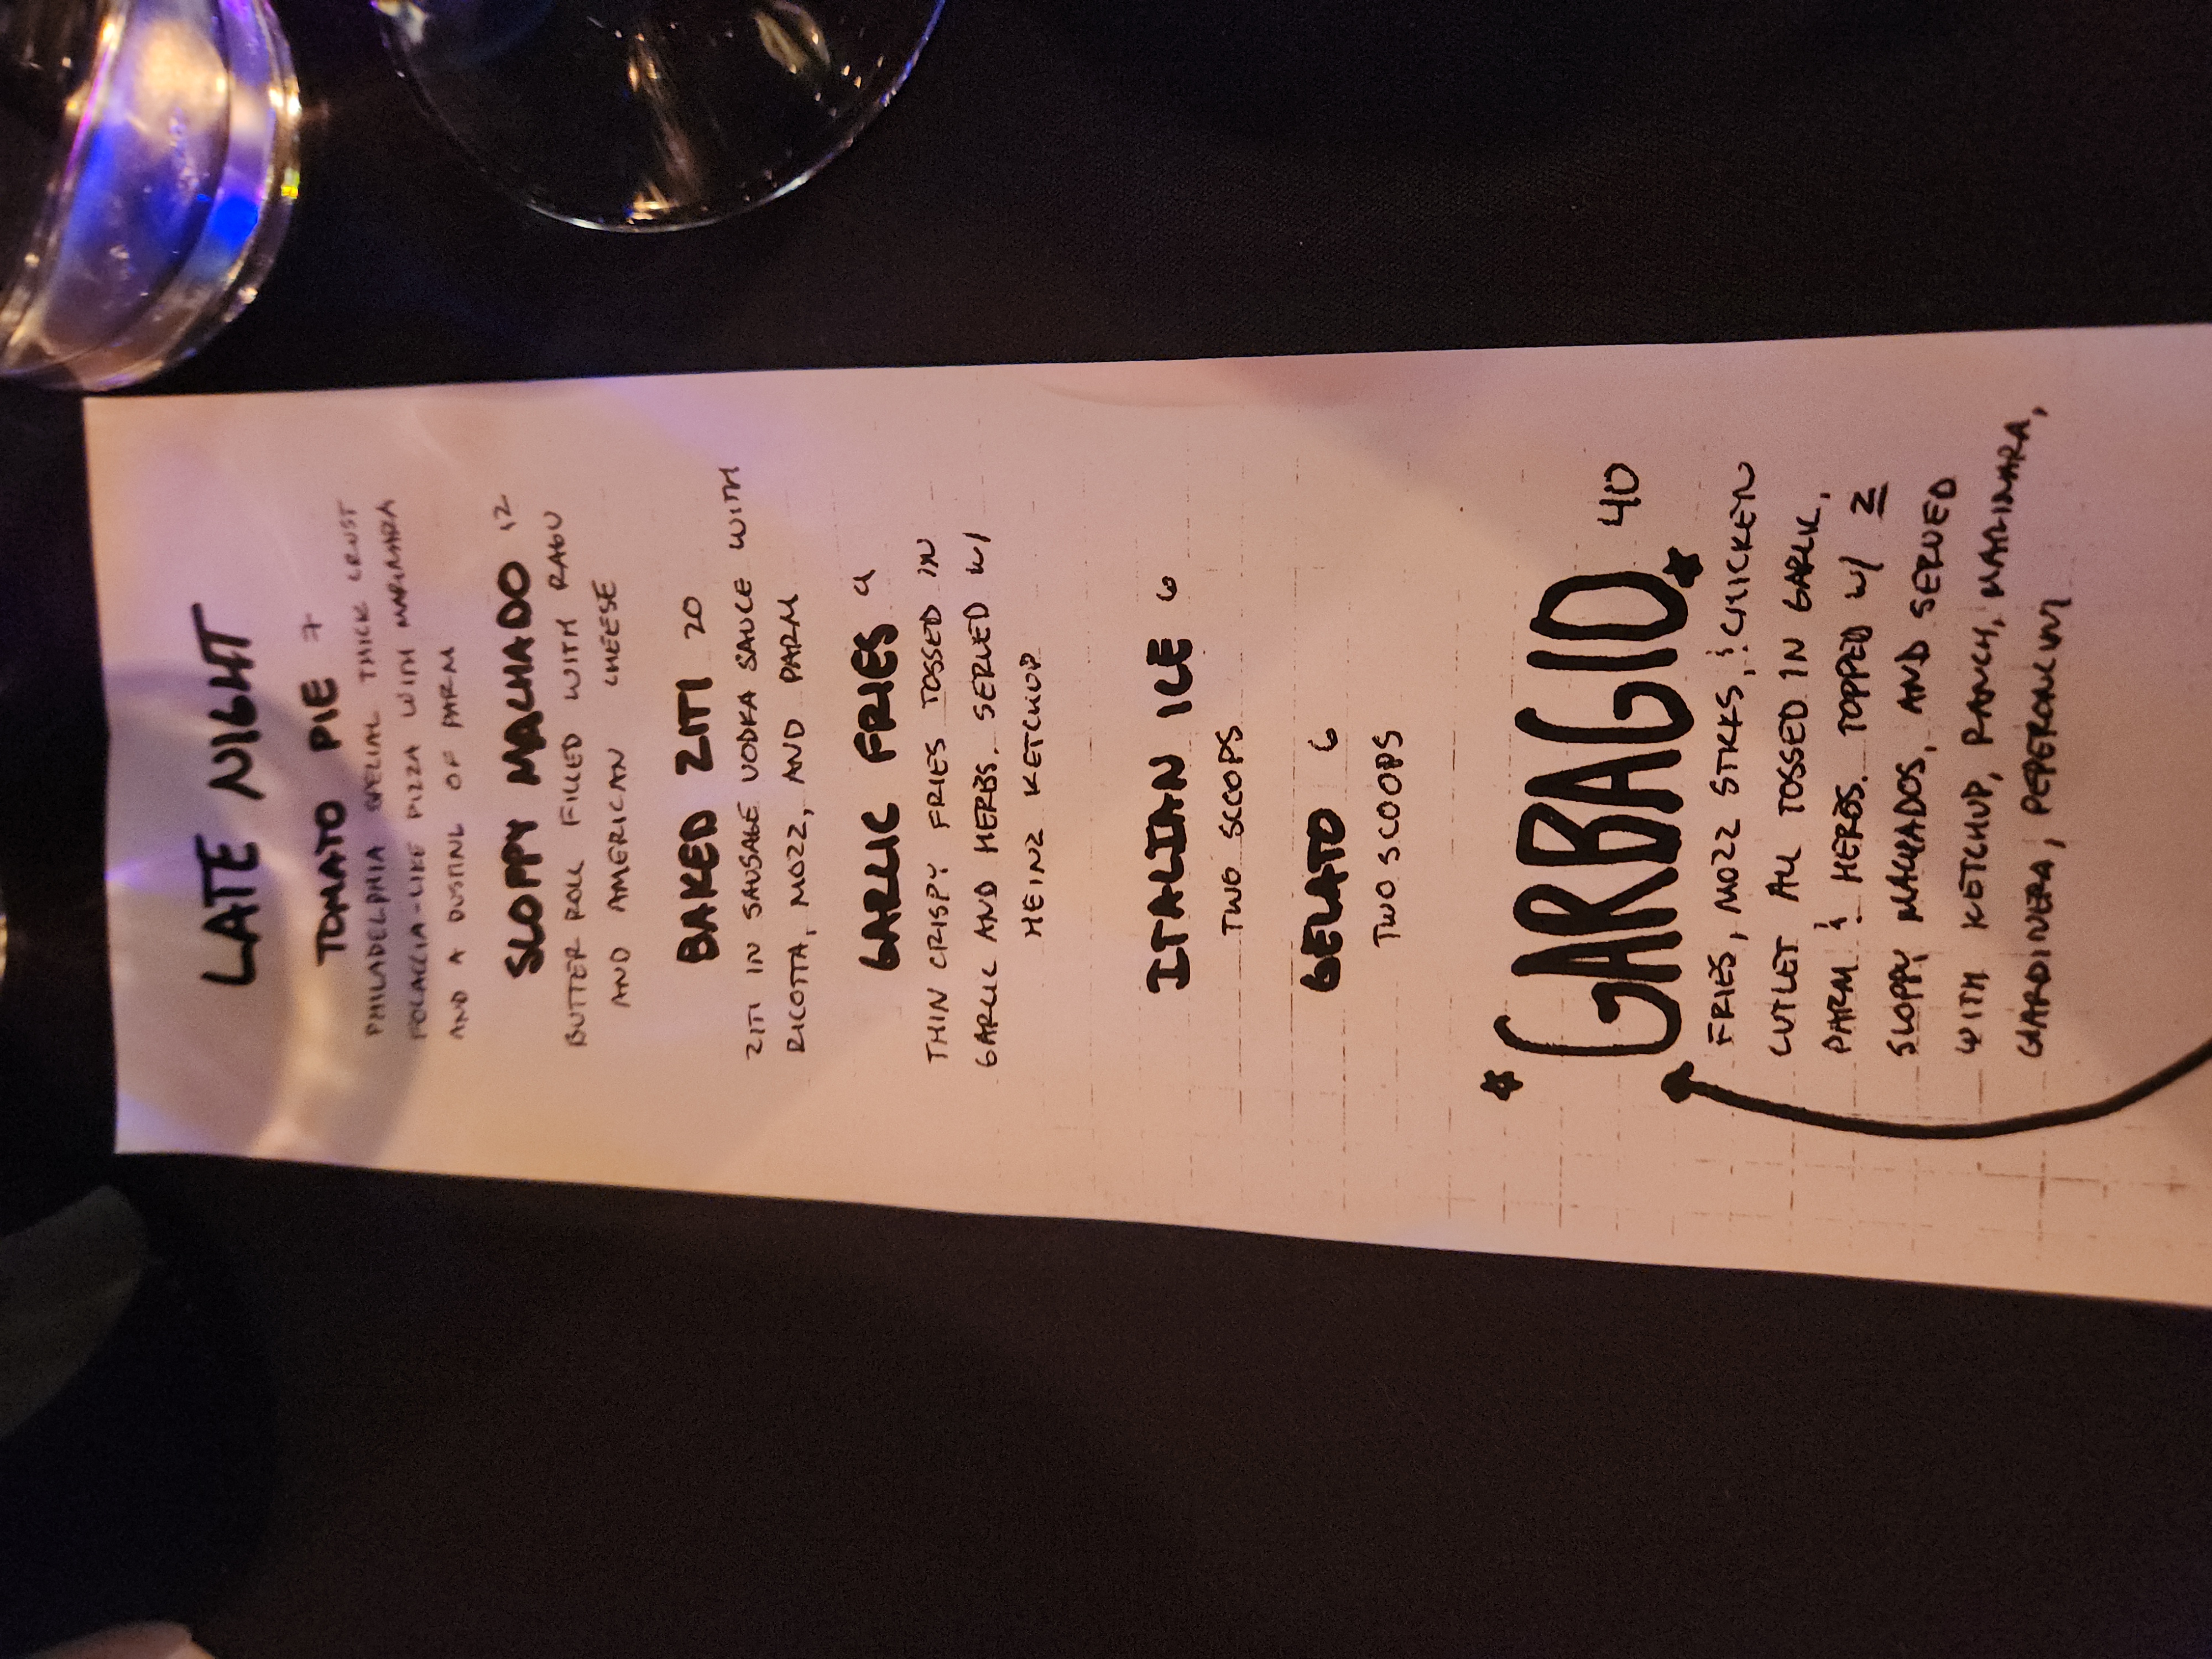 LATE NIGHT
TOMATO PIE 7
PHILADELPHIA SPECIAL THICK CRUST
FOCACCIA-LIKE PIZZA WITH MARINARA
AND A DUSTING OF PARM
SLOPPY MACHADO 12
BUTTER ROLL FILLED WITH RAGU
AND AMERICAN CHEESE
BAKED ZITI 20
ZITI IN SAUSAGE VODKA SAUCE WITH
RICOTTA, MOZZ, AND PARM
GARLIC FRIES 9
THIN CRISPY FRIES TOSSED IN
GARLIC AND HERBS. SERVED W/
HEINZ KETCHUP
ITALIAN ICE 6
TWO SCOOPS
GELATO 6
TWO SCOOPS
*GARBAGIO* 40
FRIES, MOZZ STICKS, & CHICKEN
CUTLET ALL TOSSED IN GARLIC,
PARM & HERBS. TOPPED W/ 2
SLOPPY MACHADOS, AND SERVED
WITH KETCHUP, RANCH, MARINARA,
GIARDINERA, PEPERONCINI